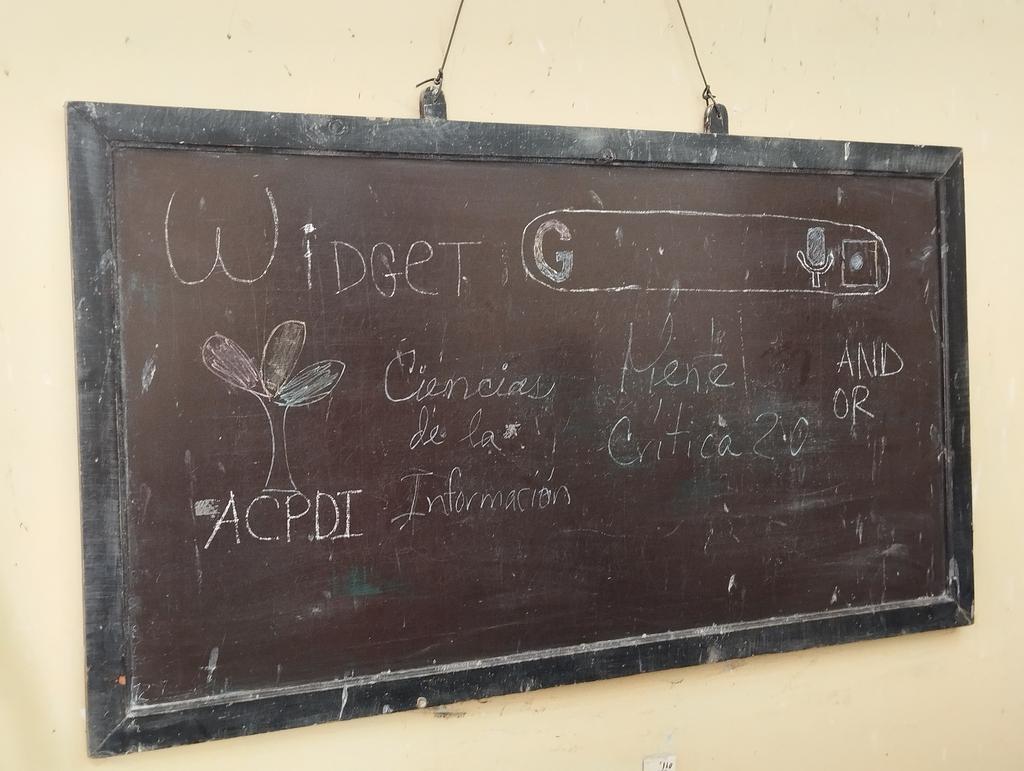 WIDGET
G
ACPDI
Ciencias
de la
Información
Mente
Crítica 2.0
AND
OR